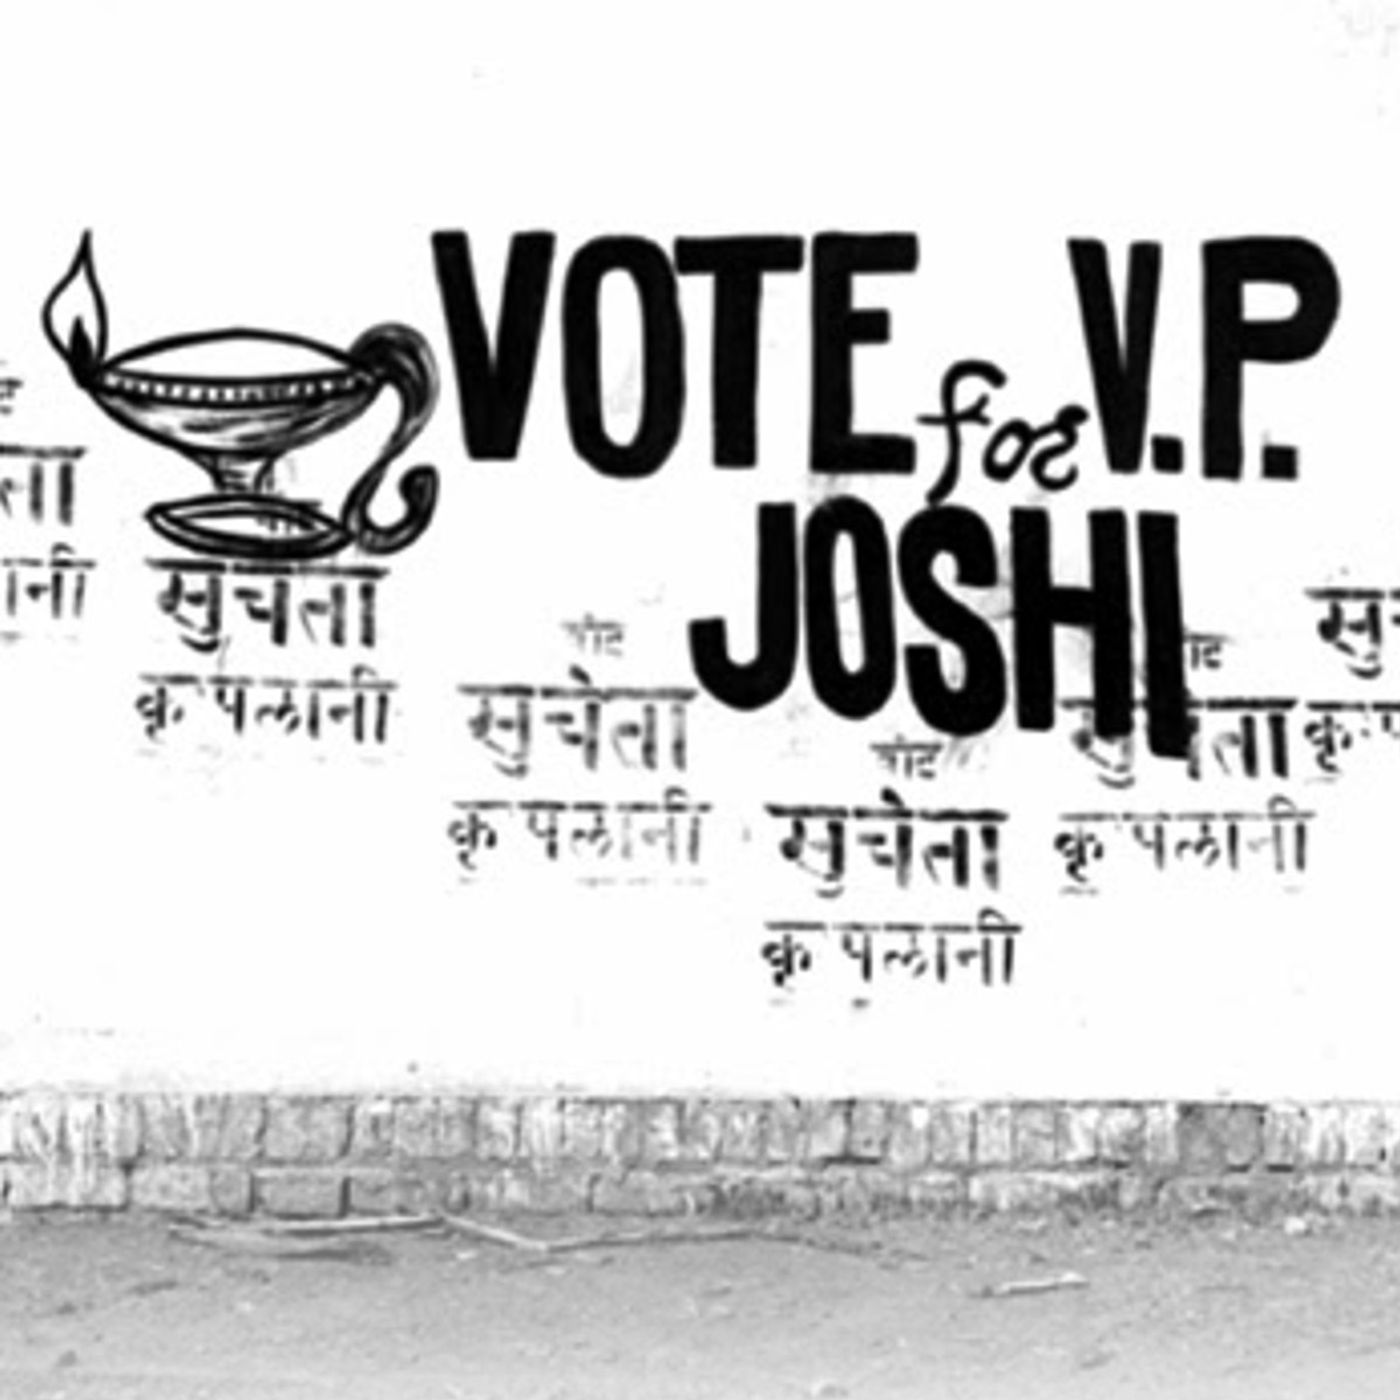 VOTE for V.P.
JOSHI
ता
नी
सुचेता
कृपलानी
वोट
सुचेता
कृपलानी
वोट
सुचेता
कृपलानी
वोट
सुचेता
कृपलानी
सु
कृप